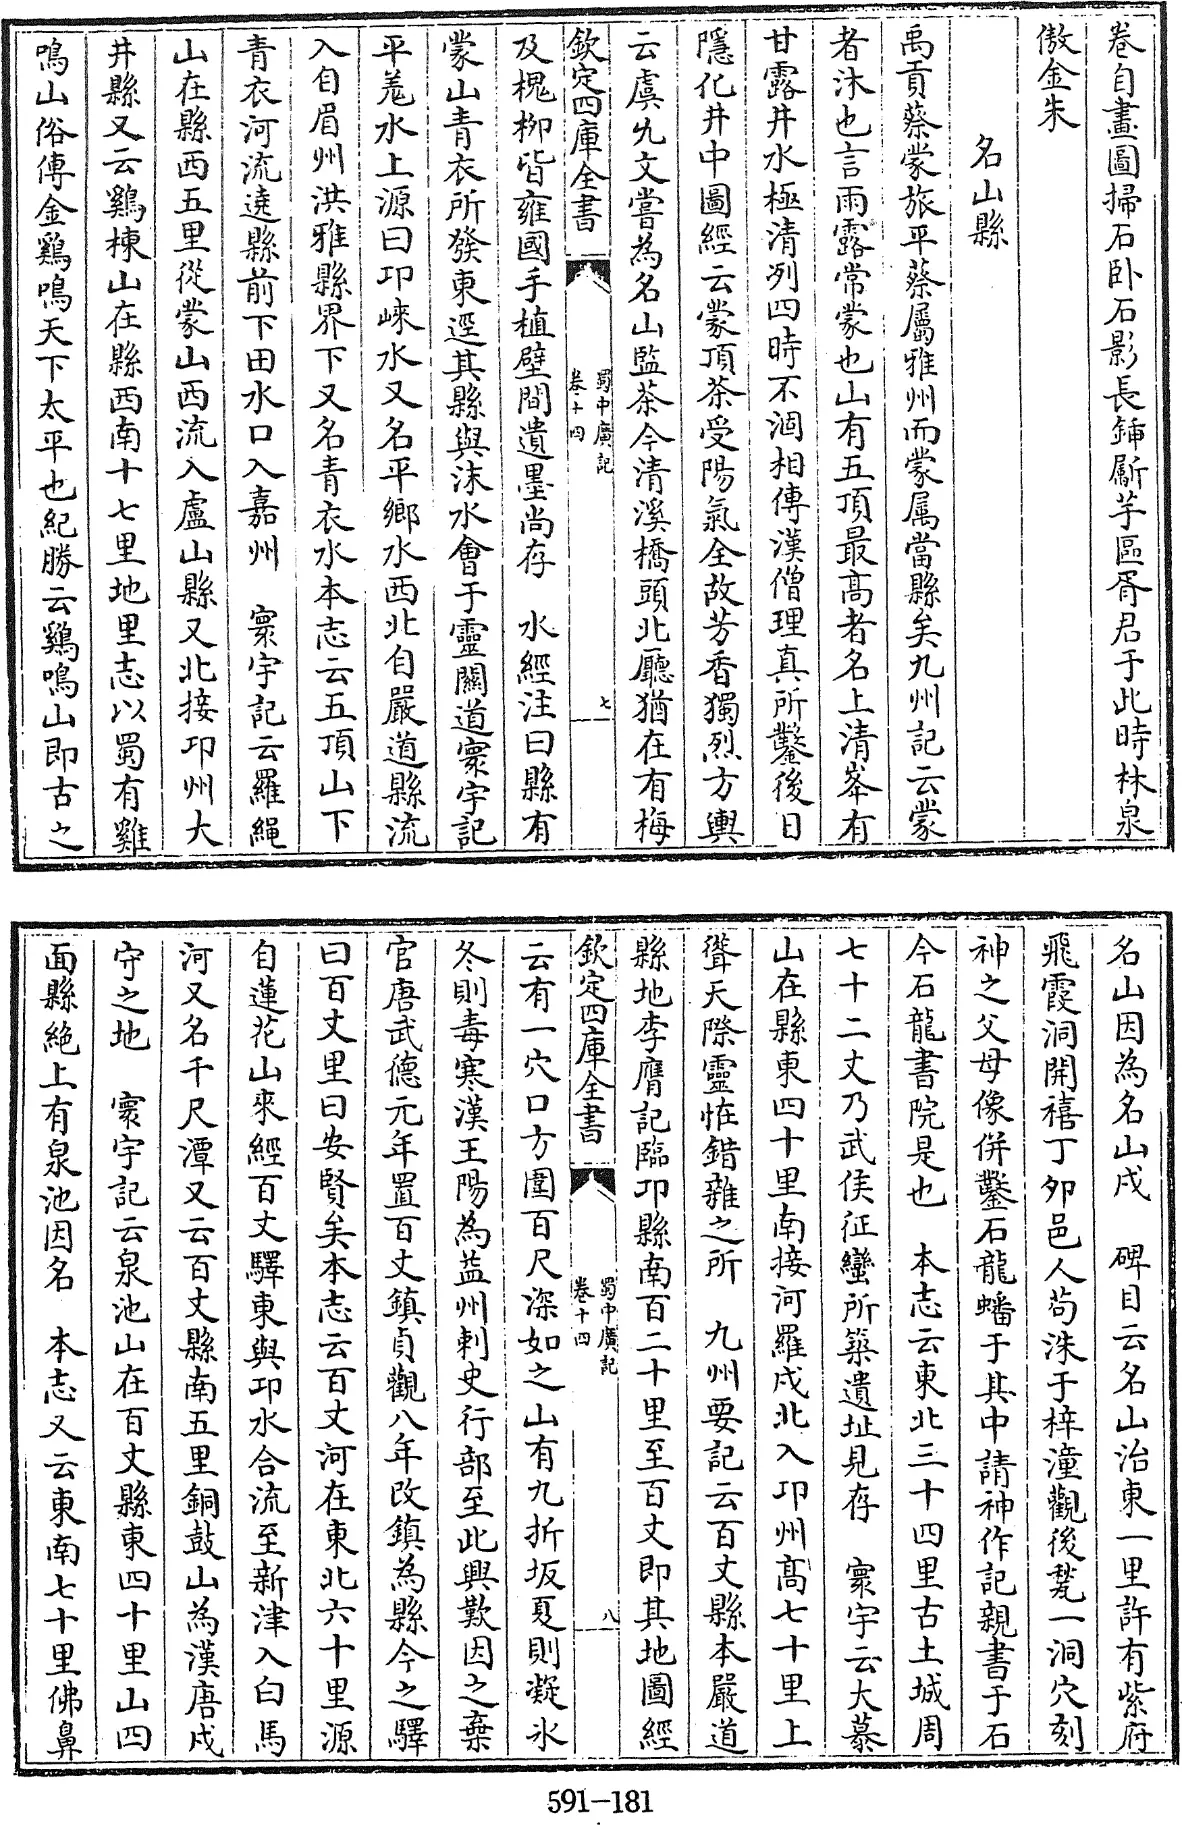 卷自畫圖掃石卧石影長鍤斸芋區胥君于此時林泉
傲金朱
名山縣
禹貢蔡蒙旅平蔡屬雅州而蒙屬當縣矣九州記云蒙
者沐也言雨露常蒙也山有五頂最高者名上清峯有
甘露井水極清冽四時不涸相傳漢僧理真所鑿後日
隱化井中圖經云蒙頂茶受陽氣全故芳香獨烈方輿
云虞允文嘗為名山監茶今清溪橋頭北廳猶在有梅
欽定四庫全書
蜀中廣記
卷十四
七
及槐柳皆雍國手植壁間遺墨尚存 水經注曰縣有
蒙山青衣所發東逕其縣與沫水會于靈關道寰宇記
平羗水上源曰邛崍水又名平鄉水西北自嚴道縣流
入自眉州洪雅縣界下又名青衣水本志云五頂山下
青衣河流遶縣前下田水口入嘉州 寰宇記云羅繩
山在縣西五里從蒙山西流入盧山縣又北接邛州大
井縣又云鷄棟山在縣西南十七里地里志以蜀有雞
鳴山俗傳金鷄鳴天下太平也紀勝云鷄鳴山即古之
名山因為名山戍 碑目云名山治東一里許有紫府
飛霞洞開禧丁夘邑人茍洙于梓潼觀後甃一洞穴刻
神之父母像併鑿石龍蟠于其中請神作記親書于石
今石龍書院是也 本志云東北三十四里古土城周
七十二丈乃武侯征蠻所築遺址見存 寰宇云大慕
山在縣東四十里南接河羅戍北入邛州高七十里上
聳天際靈恠錯雜之所 九州要記云百丈縣本嚴道
縣地李膺記臨邛縣南百二十里至百丈即其地圖經
欽定四庫全書
蜀中廣記
卷十四
八
云有一穴口方圍百尺深如之山有九折坂夏則凝氷
冬則毒寒漢王陽為益州刺史行部至此興歎因之棄
官唐武德元年置百丈鎮貞觀八年改鎮為縣今之驛
曰百丈里曰安賢矣本志云百丈河在東北六十里源
自蓮花山來經百丈驛東與邛水合流至新津入白馬
河又名千尺潭又云百丈縣南五里銅鼓山為漢唐戍
守之地 寰宇記云泉池山在百丈縣東四十里山四
面縣絶上有泉池因名 本志又云東南七十里佛鼻
591-181